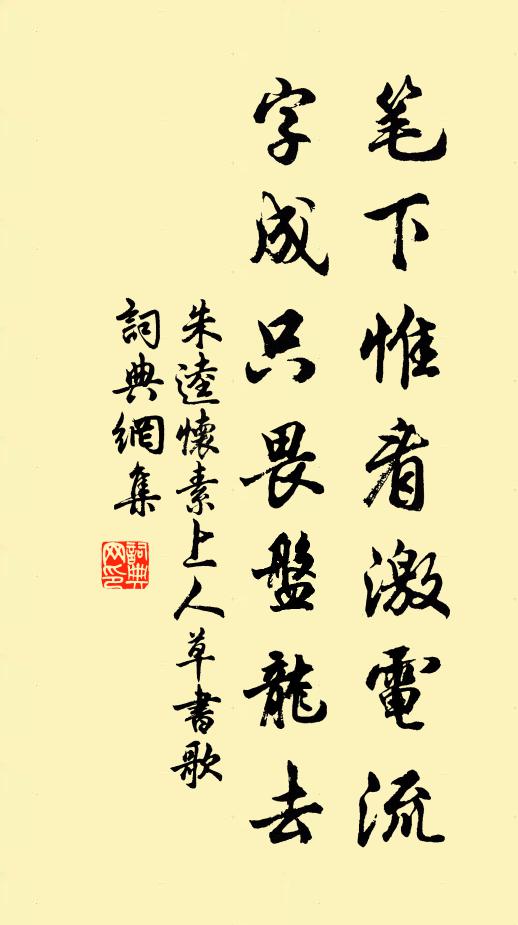 笔下惟看激電流
字成只畏盤龍去
朱逵懷素上人草書歌
詞典網集
詞典網印